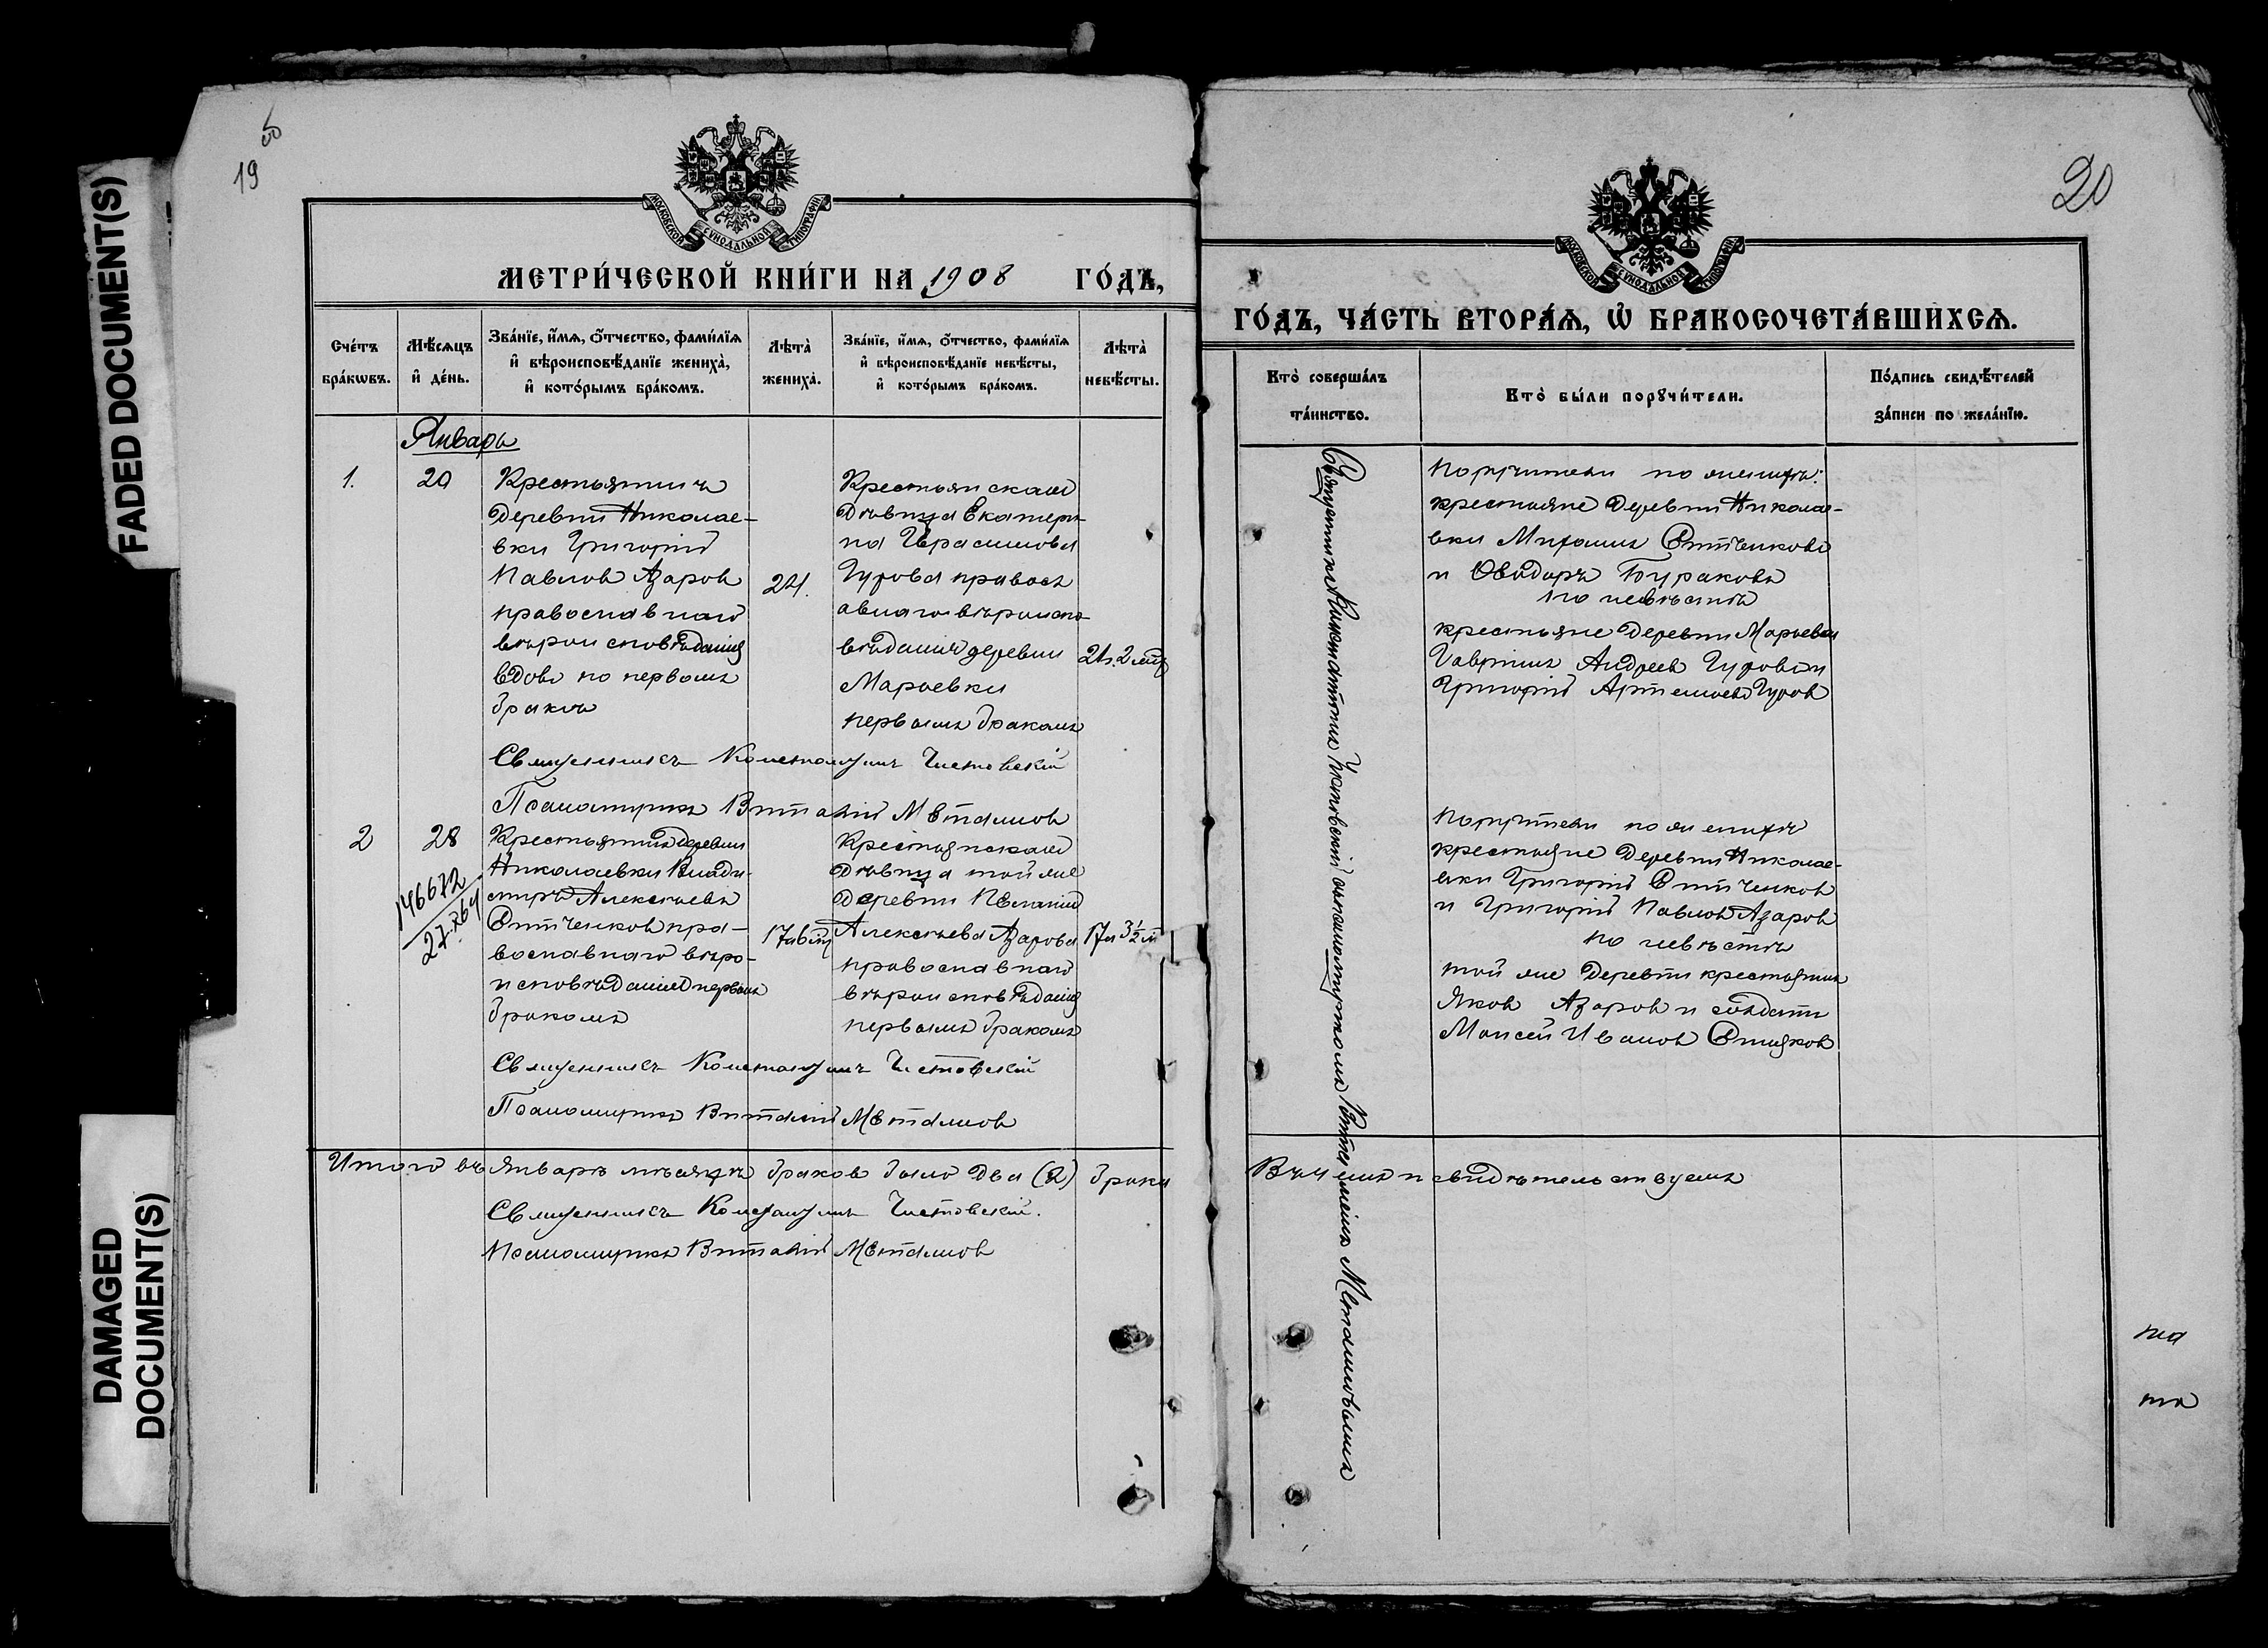 FADED DOCUMENT(S)
DAMAGED DOCUMENT(S)
19
МОСКОВСКОЙ СѴНОДАЛЬНОЙ ТИПОГРАФІИ
МЕТРИ́ЧЕСКОЙ КНИ́ГИ НА 1908 ГО́ДЪ,
Сче́тъ бра́кѡвъ.
Мѣ́сяцъ и҆ де́нь.
Зва́нїе, и҆́мѧ, ѻ҆́тчество, фами́лїѧ и҆ вѣроисповѣ́данїе жениха̀, и҆ кото́рымъ бра́комъ.
Лѣта̀ жениха̀.
Зва́нїе, и҆́мѧ, ѻ҆́тчество, фами́лїѧ и҆ вѣроисповѣ́данїе невѣ́сты, и҆ кото́рымъ бра́комъ.
Лѣта̀ невѣ́сты.
Январь
1.
20
Крестьянинъ
Деревни Николае-
вки Григорій
Павловъ Азаровъ
православнаго
вѣроисповѣданія
вдовъ по первомъ
бракѣ
24.
Крестьянская
Дѣвица Екатери-
на Герасимова
Гурова правосл
авнаго вѣроиспо-
вѣданія деревни
Марьевки
первымъ бракомъ
Священникъ Константинъ Чистовскій
Псаломщикъ Виталій Метамовъ
2
28
146672
27.X64
Крестьянинъ Деревни
Николаевки Влади-
миръ Алексѣевъ
пра-
вославнаго вѣро-
исповѣданія первымъ
бракомъ
Крестьянская
Дѣвица той же
Деревни
Алексѣева Азарова
православнаго
вѣроисповѣданія
первымъ бракомъ
17 л 3½ м
Священникъ Константинъ Чистовскій
Псаломщикъ Виталій Метамовъ
Итого въ Январѣ мѣсяцѣ браковъ было Два (2) брака
Священникъ Константинъ Чистовскій.
Псаломщикъ Виталій Метамовъ
20
МОСКОВСКОЙ СѴНОДАЛЬНОЙ ТИПОГРАФІИ
ГО́ДЪ, ЧА́СТЬ ВТОРА́Ѧ, Ѡ҆ БРАКОСОЧЕТА́ВШИХСѦ.
Кто̀ соверша́лъ та́инство.
Кто̀ бы́ли порꙋчи́тели.
По́дпись свидѣ́телей за́писи по жела́нїю.
Священникъ Константинъ Чистовскій съ псаломщикомъ Виталіемъ Метамовымъ
Поручители по женихѣ:
крестьяне Деревни Николае-
вки Михаилъ
и Ѳеодоръ Бураковъ
по невѣстѣ
крестьяне Деревни Марьевки
Гавріилъ Андреевъ Гуровъ и
Григорій Артемьевъ Гуровъ
Поручители по женихѣ
крестьяне Деревни Николае-
вки Григорій
и Григорій Павловъ Азаровъ
по невѣстѣ
той же Деревни крестьянинъ
Яковъ Азаровъ и солдатъ
Моисей Ивановъ
свидѣтельствуемъ